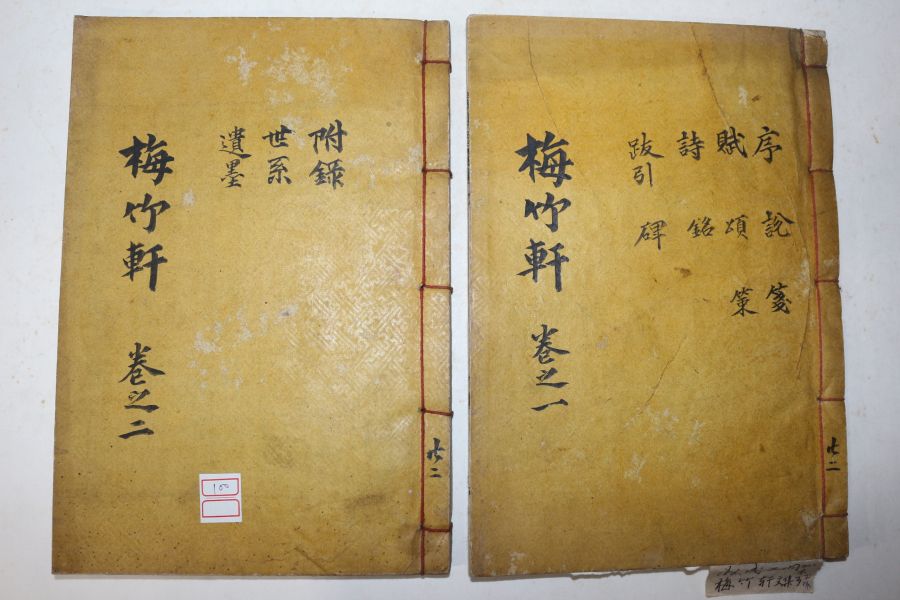 序 說 箋
賦 頌 策
詩 銘
跋引 碑
梅竹軒 卷之一
共二
梅竹軒
附錄
世系
遺墨
梅竹軒 卷之二
共二
100